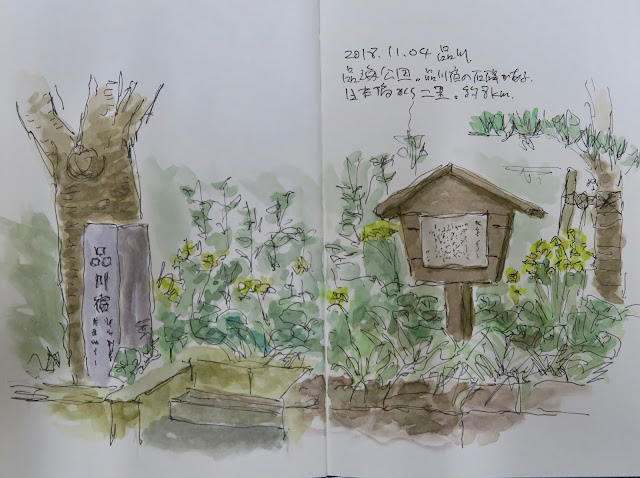 2018.11.04 品川.
品海公園。品川宿の石碑がある.
日本橋から二里。約8km.
品川宿